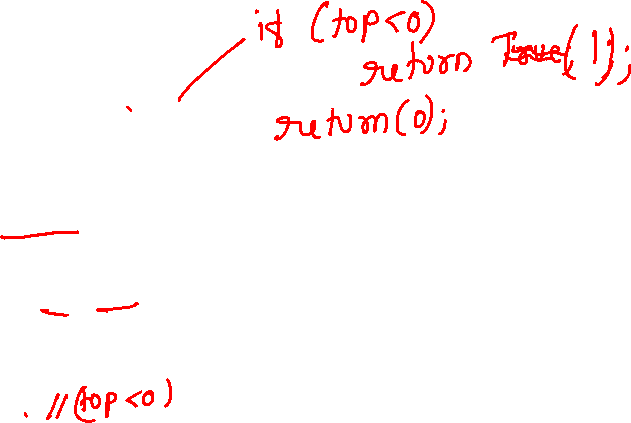 if (top<0)
return (1);
return(0);
//(top<0)